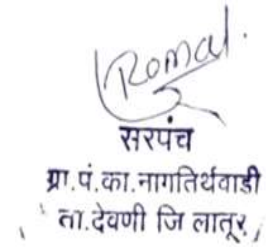 Romal.
सरपंच
ग्रा.पं.का.नागतिर्थवाडी
ता.देवणी जि लातूर,